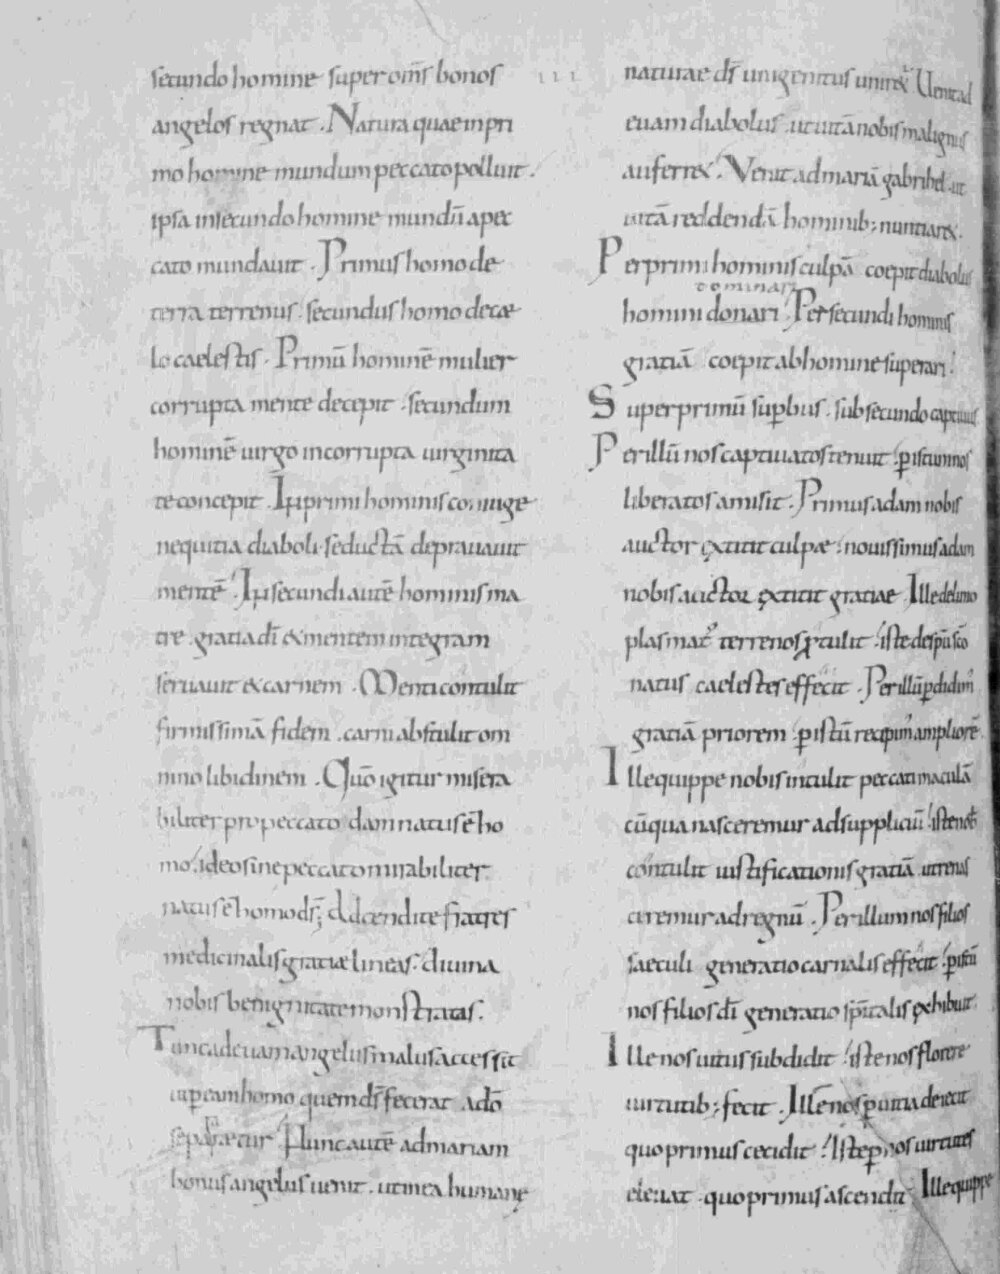 secundo homine super om̅s bonos
angelos regnat . Natura quae in pri
mo homine mundum peccato polluit .
ipsa in secundo homine mundū a pec
cato mundauit . Primus homo de
terra terrenus . secundus homo de cæ
lo caelestis . Primū hominē mulier
corrupta mente decepit . secundum
hominē uirgo incorrupta uirginita
te concepit . In primi hominis coniuge
nequitia diaboli seductā deprauauit
mentē . In secundi autē hominis ma
tre . gratia dī & mentem integram
seruauit & carnem . Menti contulit
firmissimā fidem . carni abstulit om
nino libidinem . Quō igitur misera
biliter pro peccato damnatus ē ho
mo . ideo sine peccato mirabiliter
natus ē homo ds̄ ; Adtendite fratres
medicinalis gratiæ lineas . diuina
nobis benignitate monstratas .
Tunc ad euam angelus malus accessit
ut p̲ eam homo quem ds̄ fecerat . a dō
separaretur . Hunc autē ad mariam
bonus angelus uenit . ut in ea humanę
naturae ds̄ unigenitus uniret᷒ . Uenit ad
euam diabolus . ut uitā nobis malignus
auferret . Venit ad mariā gabrihel . ut
uitā reddendā hominib; nuntiaret .
Per primi hominis culpā coepit diabolus
dominari
homini donari . Per secundi hominis
gratiā coepit ab homine superari .
Super primū sup̲bus . sub secundo captiuus
Per illū nos captiuatos tenuit . p̲ istum nos
liberatos amisit . Primus adam nobis
auctor extitit culpæ . nouissimus adam
nobis auctor extitit gratiae . Ille de limo
plasmat᷒ terrenos p̲tulit . iste de sp̄u sc̄o
natus caelestes effecit . Per illū p̲didim᷒
gratiā priorem . p̲ istū recipim᷒ ampliorē .
Ille quippe nobis intulit peccati maculā
cū qua nasceremur ad suppliciū . iste nob̄
contulit iustificationis gratiā ut renas
ceremur ad regnū . Per illum nos filios
saeculi generatio carnalis effecit . p̲ istū
nos filios dī generatio sp̄italis exhibuit .
Ille nos uitiis subdidit . iste nos florere
uirtutib; fecit . Ille nos p̲ uitia deiecit
quo primus cecidit . Iste p̲ nos uirtutes
eleuat quo primus ascendit . Ille quippe